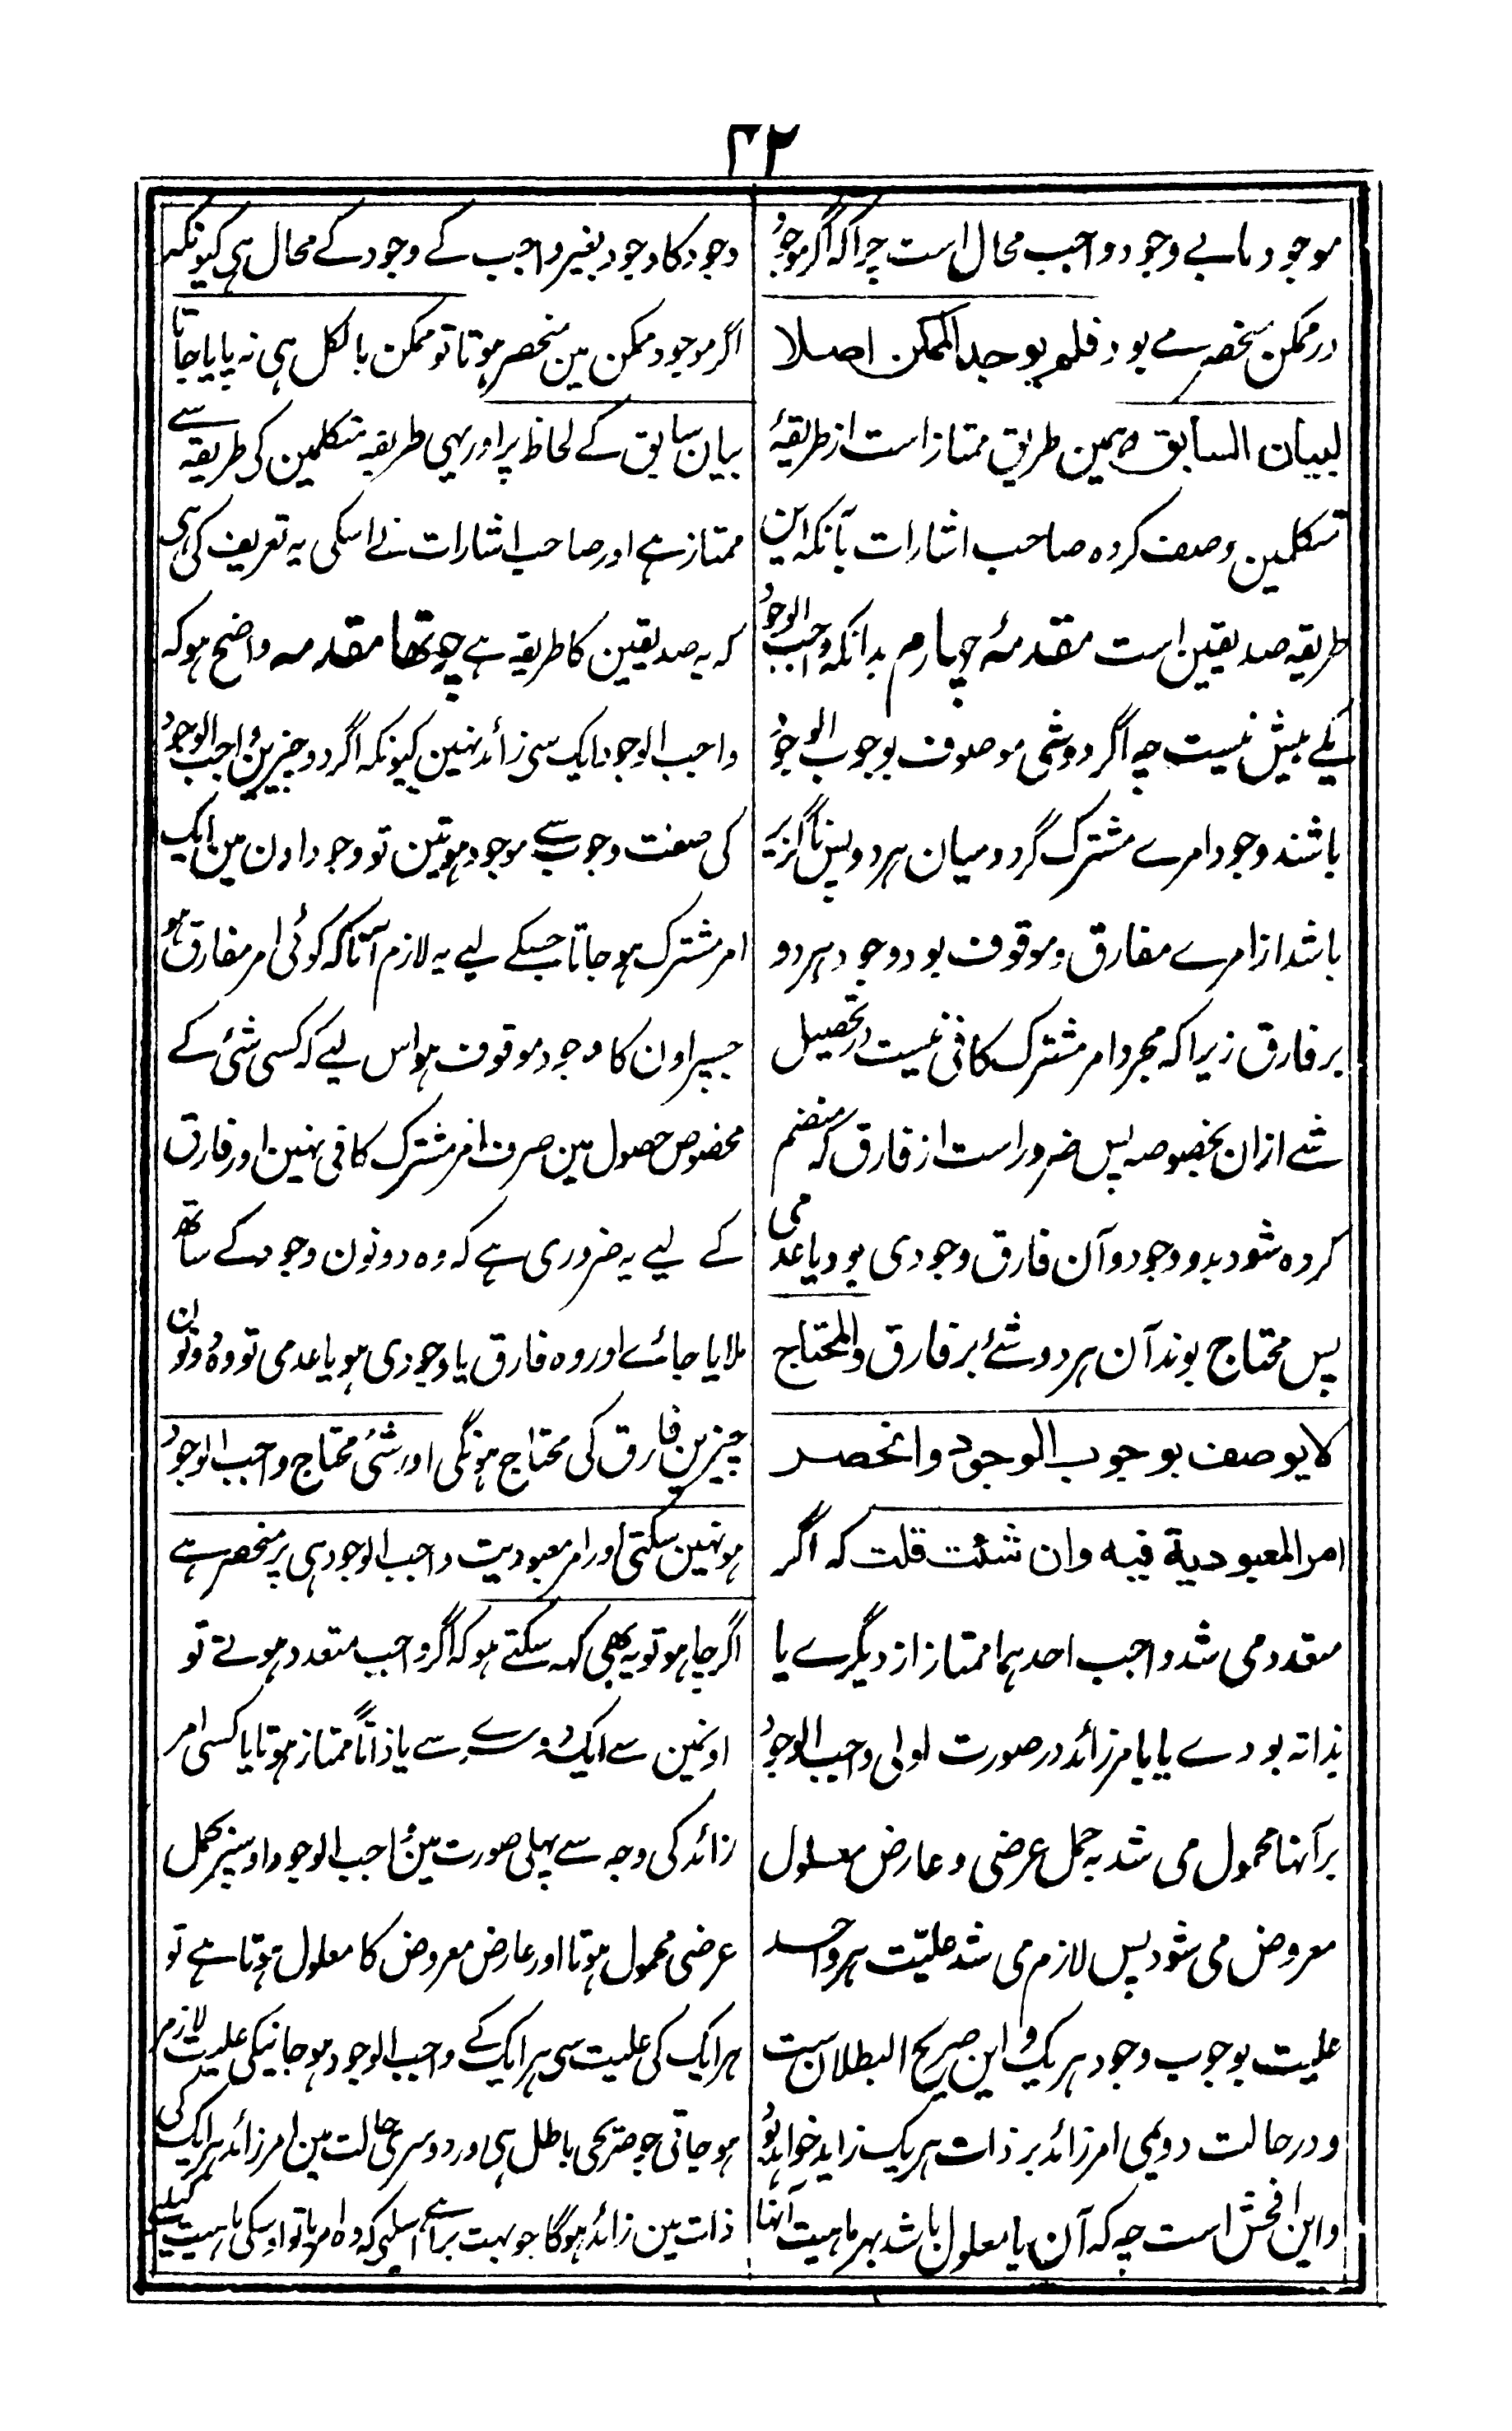 ۴۲
موجود ما بے وجود واجب محال است چراکہ اگر موجود
در ممکن منحصر مے بود فلم یوجد الممکن اصلا
لبیان السابق و ہمین طریق ممتاز است از طریقۂ
متکلمین وصف کردہ صاحب اشارات بآنکہ این
طریقہ صدیقین است مقدمۂ چہارم بدانکہ واجب الوجود
یکے بیش نیست چہ اگر دو شی موصوف بوجوب الوجود
باشند وجود امرے مشترک گردد میان ہر دو پس ناگزیر
باشد از امرے مفارق و موقوف بود وجود ہر دو
بر فارق زیراکہ مجرد امر مشترک کافی نیست در تحصیل
شے ازان بخصوصہ پس ضرور است از فارق کہ منضم
کردہ شود بدو وجود و آن فارق وجودی بود یا عدمی
پس محتاج بوند آن ہر دو شئے بر فارق والمحتاج
لا یوصف بوجوب الوجود وانحصر
امر المعبودیة فیہ وان شئت قلت کہ اگر
متعدد می شد واجب احدہما ممتاز از دیگرے یا
بذاتہ بودے یا بامر زائد در صورت اولی واجب الوجود
بر آنہا محمول می شد بہ حمل عرضی و عارض معلول
معروض می شود پس لازم می شد علیّت ہر واحد
علیت بوجوب وجود ہر یک و این صریح البطلان ست
و در حالت دویمی امر زائد بر ذات ہر یک زاید خواہد بود
و این افحش است چہ کہ آن یا معلول باشد بہر ماہیت آنہا
وجود کا وجود بغیر واجب کے وجود کے محال ہی کیونکہ
اگر موجود ممکن مین منحصر ہوتا تو ممکن بالکل ہی نہ پایا جاتا
بیان سابق کے لحاظ پر اور یہی طریقہ متکلمین کی طریقہ سے
ممتاز ہے اور صاحب اشارات نے اسکی یہ تعریف کی ہی
کہ یہ صدیقین کا طریقہ ہے چوتھا مقدمہ واضح ہو کہ
واجب الوجود ایک سی زائد نہین کیونکہ اگر دو چیزین واجب الوجود
کی صفت وجوب سے موجود ہوتین تو وجود اون مین ایک
امر مشترک ہو جاتا جسکے لیے یہ لازم آتا کہ کوئی امر مفارق ہو
جسپر اون کا وجود موقوف ہو اس لیے کہ کسی شئی کے
مخصوص حصول مین صرف امر مشترک کافی نہین اور فارق
کے لیے یہ ضروری ہے کہ وہ دونون وجود کے ساتھ
ملایا جائے اور وہ فارق یا وجودی ہو یا عدمی تو وہ دونون
چیزین فارق کی محتاج ہونگی اور شئی محتاج واجب الوجود
ہو نہین سکتی اور امر معبودیت واجب الوجود ہی پر منحصر ہے
اگر چاہو تو یہ بھی کہہ سکتے ہو کہ اگر واجب متعدد ہوتے تو
اونمین سے ایک دوسرے سے یا ذاتاً ممتاز ہوتا یا کسی امر
زائد کی وجہ سے پہلی صورت مین واجب الوجود اونپر بحمل
عرضی محمول ہوتا اور عارض معروض کا معلول ہوتا ہے تو
ہر ایک کی علیت سی ہر ایک کے واجب الوجود ہو جانیکی علیت لازم
ہو جاتی جو صریحی باطل ہی اور دوسری حالت مین امر زائد ہر ایک کی
ذات مین زائد ہوگا جو بہت برا ہے اسلیے کہ وہ امر یا تو اوسکی ماہیت کیلیے